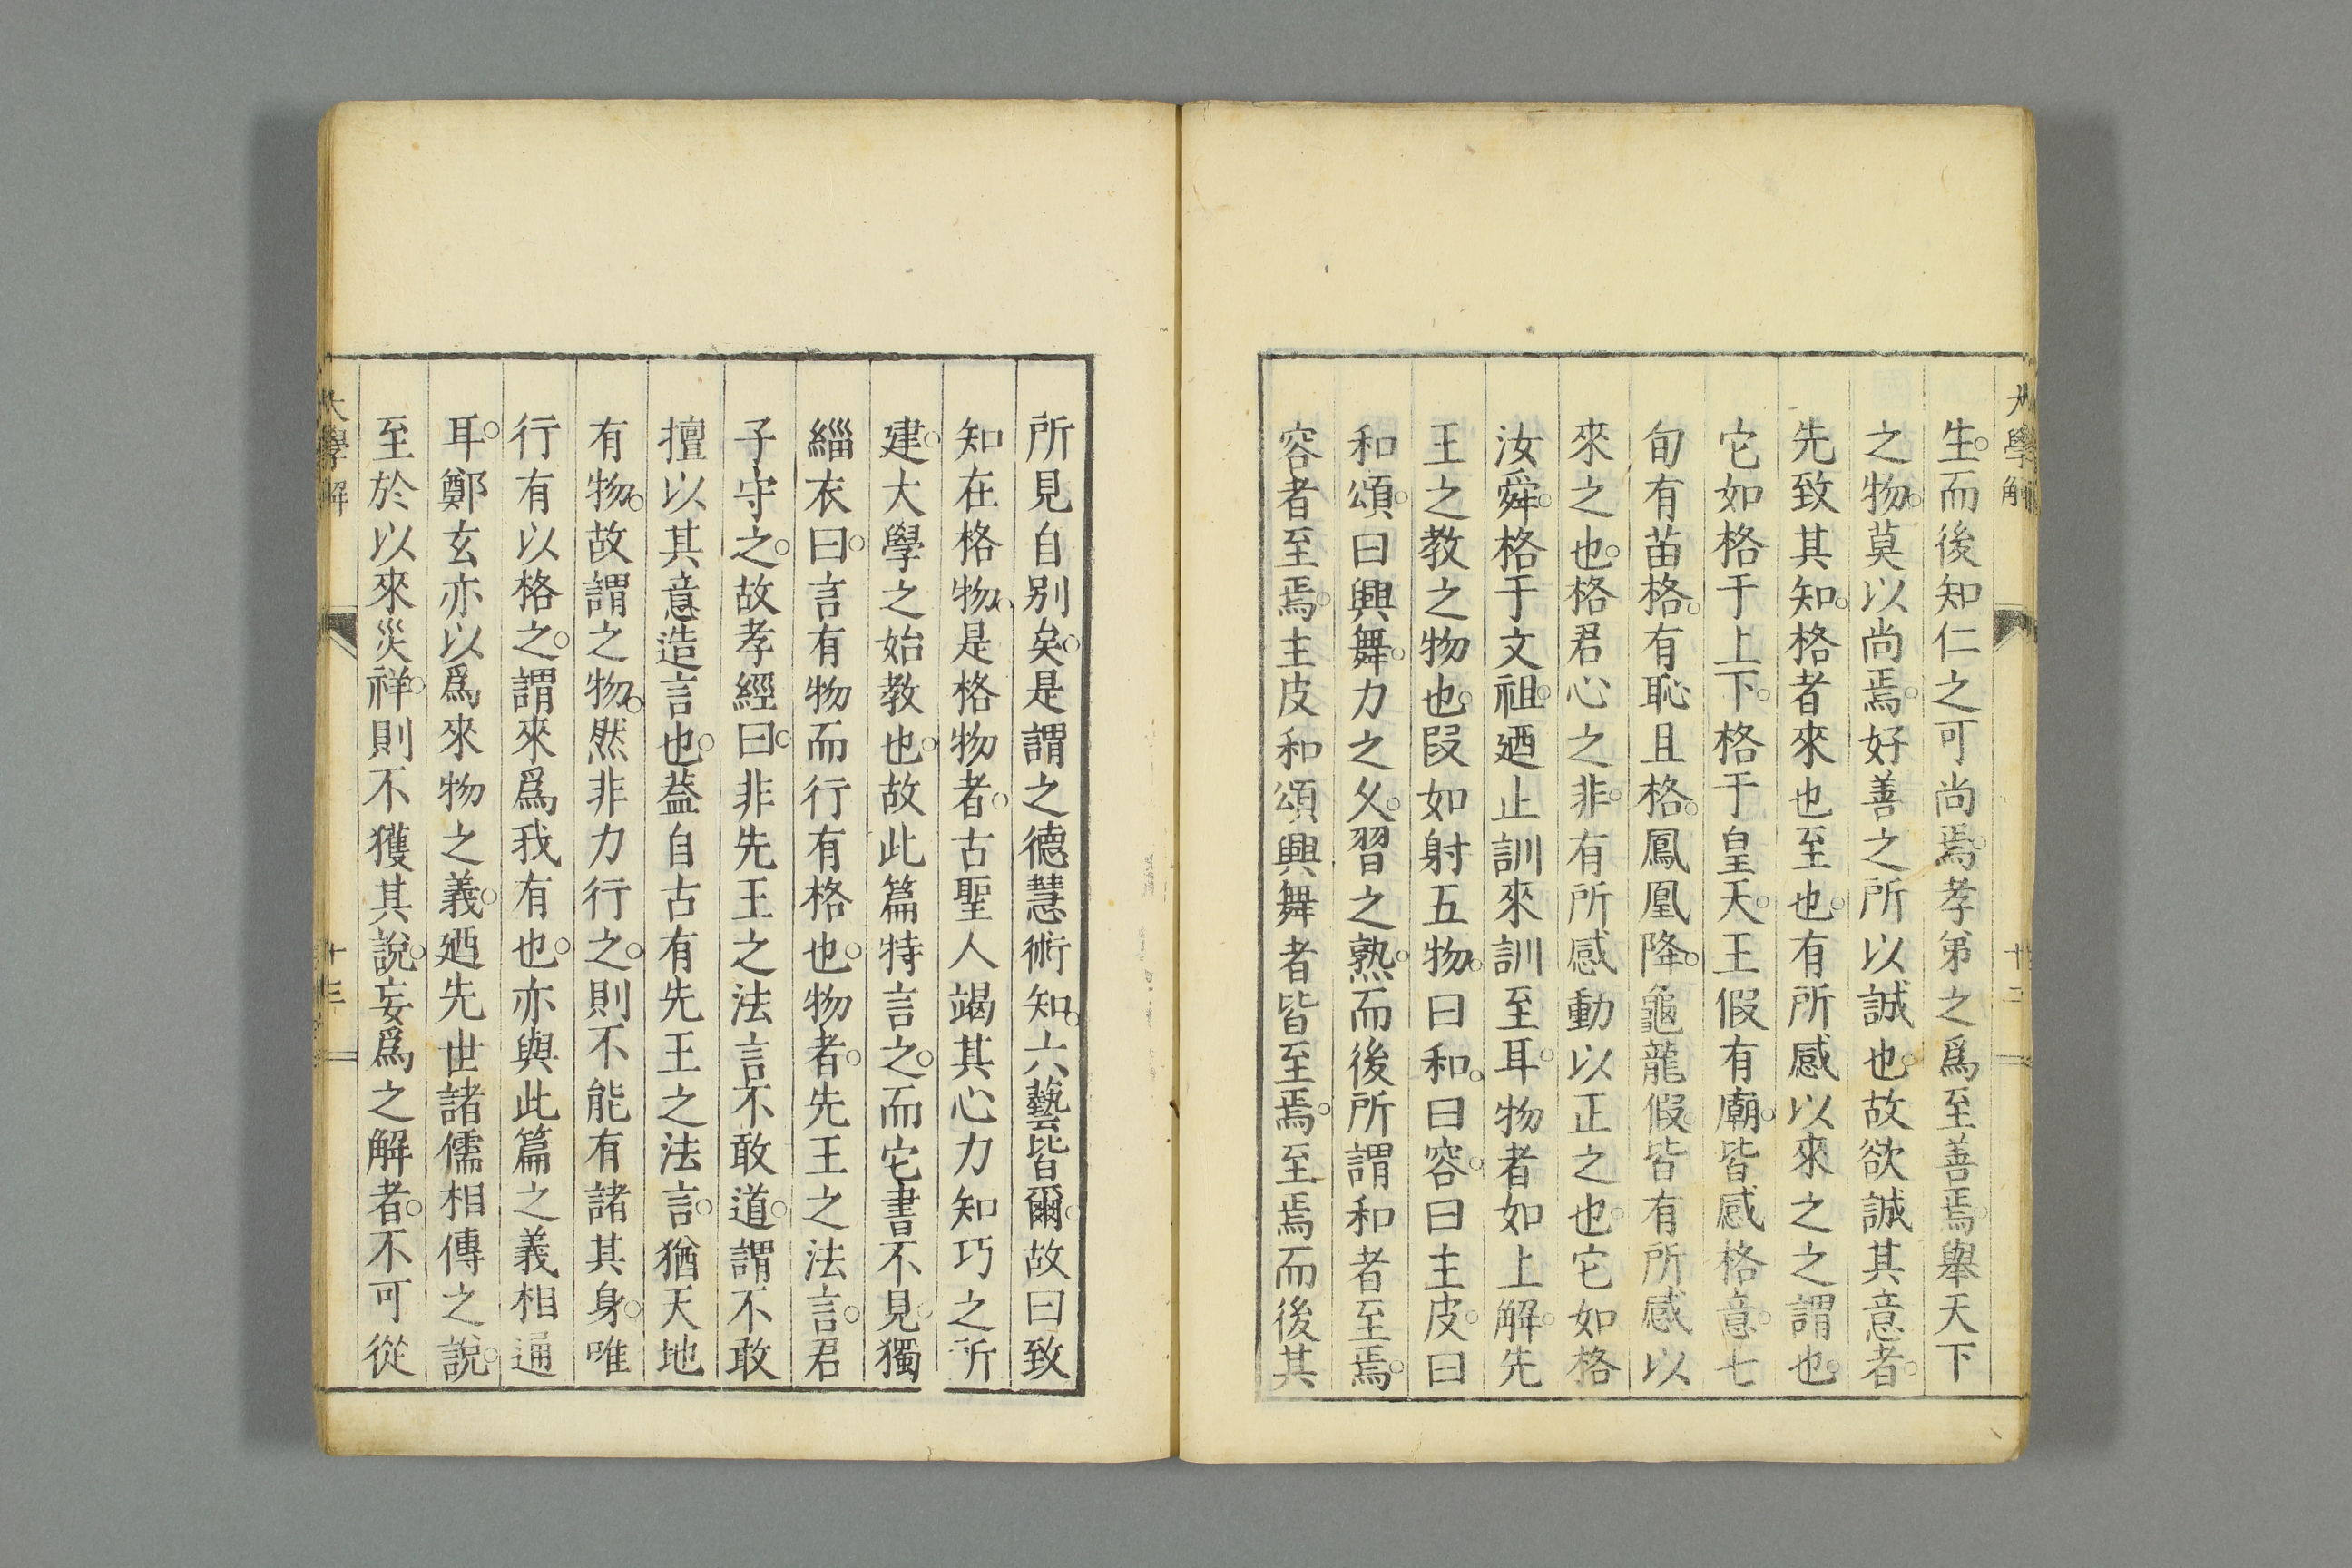 大學解
十二
生。而後知仁之可尚焉。孝弟之爲至善焉。舉天下
之物。莫以尚焉。好善之所以誠也。故欲誠其意者。
先致其知。格者來也至也。有所感以來之之謂也。
它如格于上下。格于皇天。王假有廟。皆感格意。七
旬有苗格。有恥且格。鳳凰降。龜龍假。皆有所感以
來之也。格君心之非。有所感動以正之也。它如格
汝舜。格于文祖。廼止訓來訓至耳。物者如上解。先
王之教之物也。叚如射五物。曰和。曰容。曰主皮。曰
和頌。曰興舞。力之久。習之熟。而後所謂和者至焉。
容者至焉。主皮和頌興舞者皆至焉。至焉而後其
所見自別矣。是謂之德慧術知。六藝皆爾。故曰致
知在格物。是格物者。古聖人竭其心力知巧之所
建。大學之始教也。故此篇特言之。而它書不見。獨
緇衣曰。言有物而行有格也。物者。先王之法言。君
子守之。故孝經曰。非先王之法言不敢道。謂不敢
擅以其意造言也。葢自古有先王之法言。猶天地
有物。故謂之物。然非力行之。則不能有諸其身。唯
行有以格之。謂來爲我有也。亦與此篇之義相通
耳。鄭玄亦以爲來物之義。廼先世諸儒相傳之說。
至於以來災祥。則不獲其說。妄爲之解者。不可從
大學解
十三